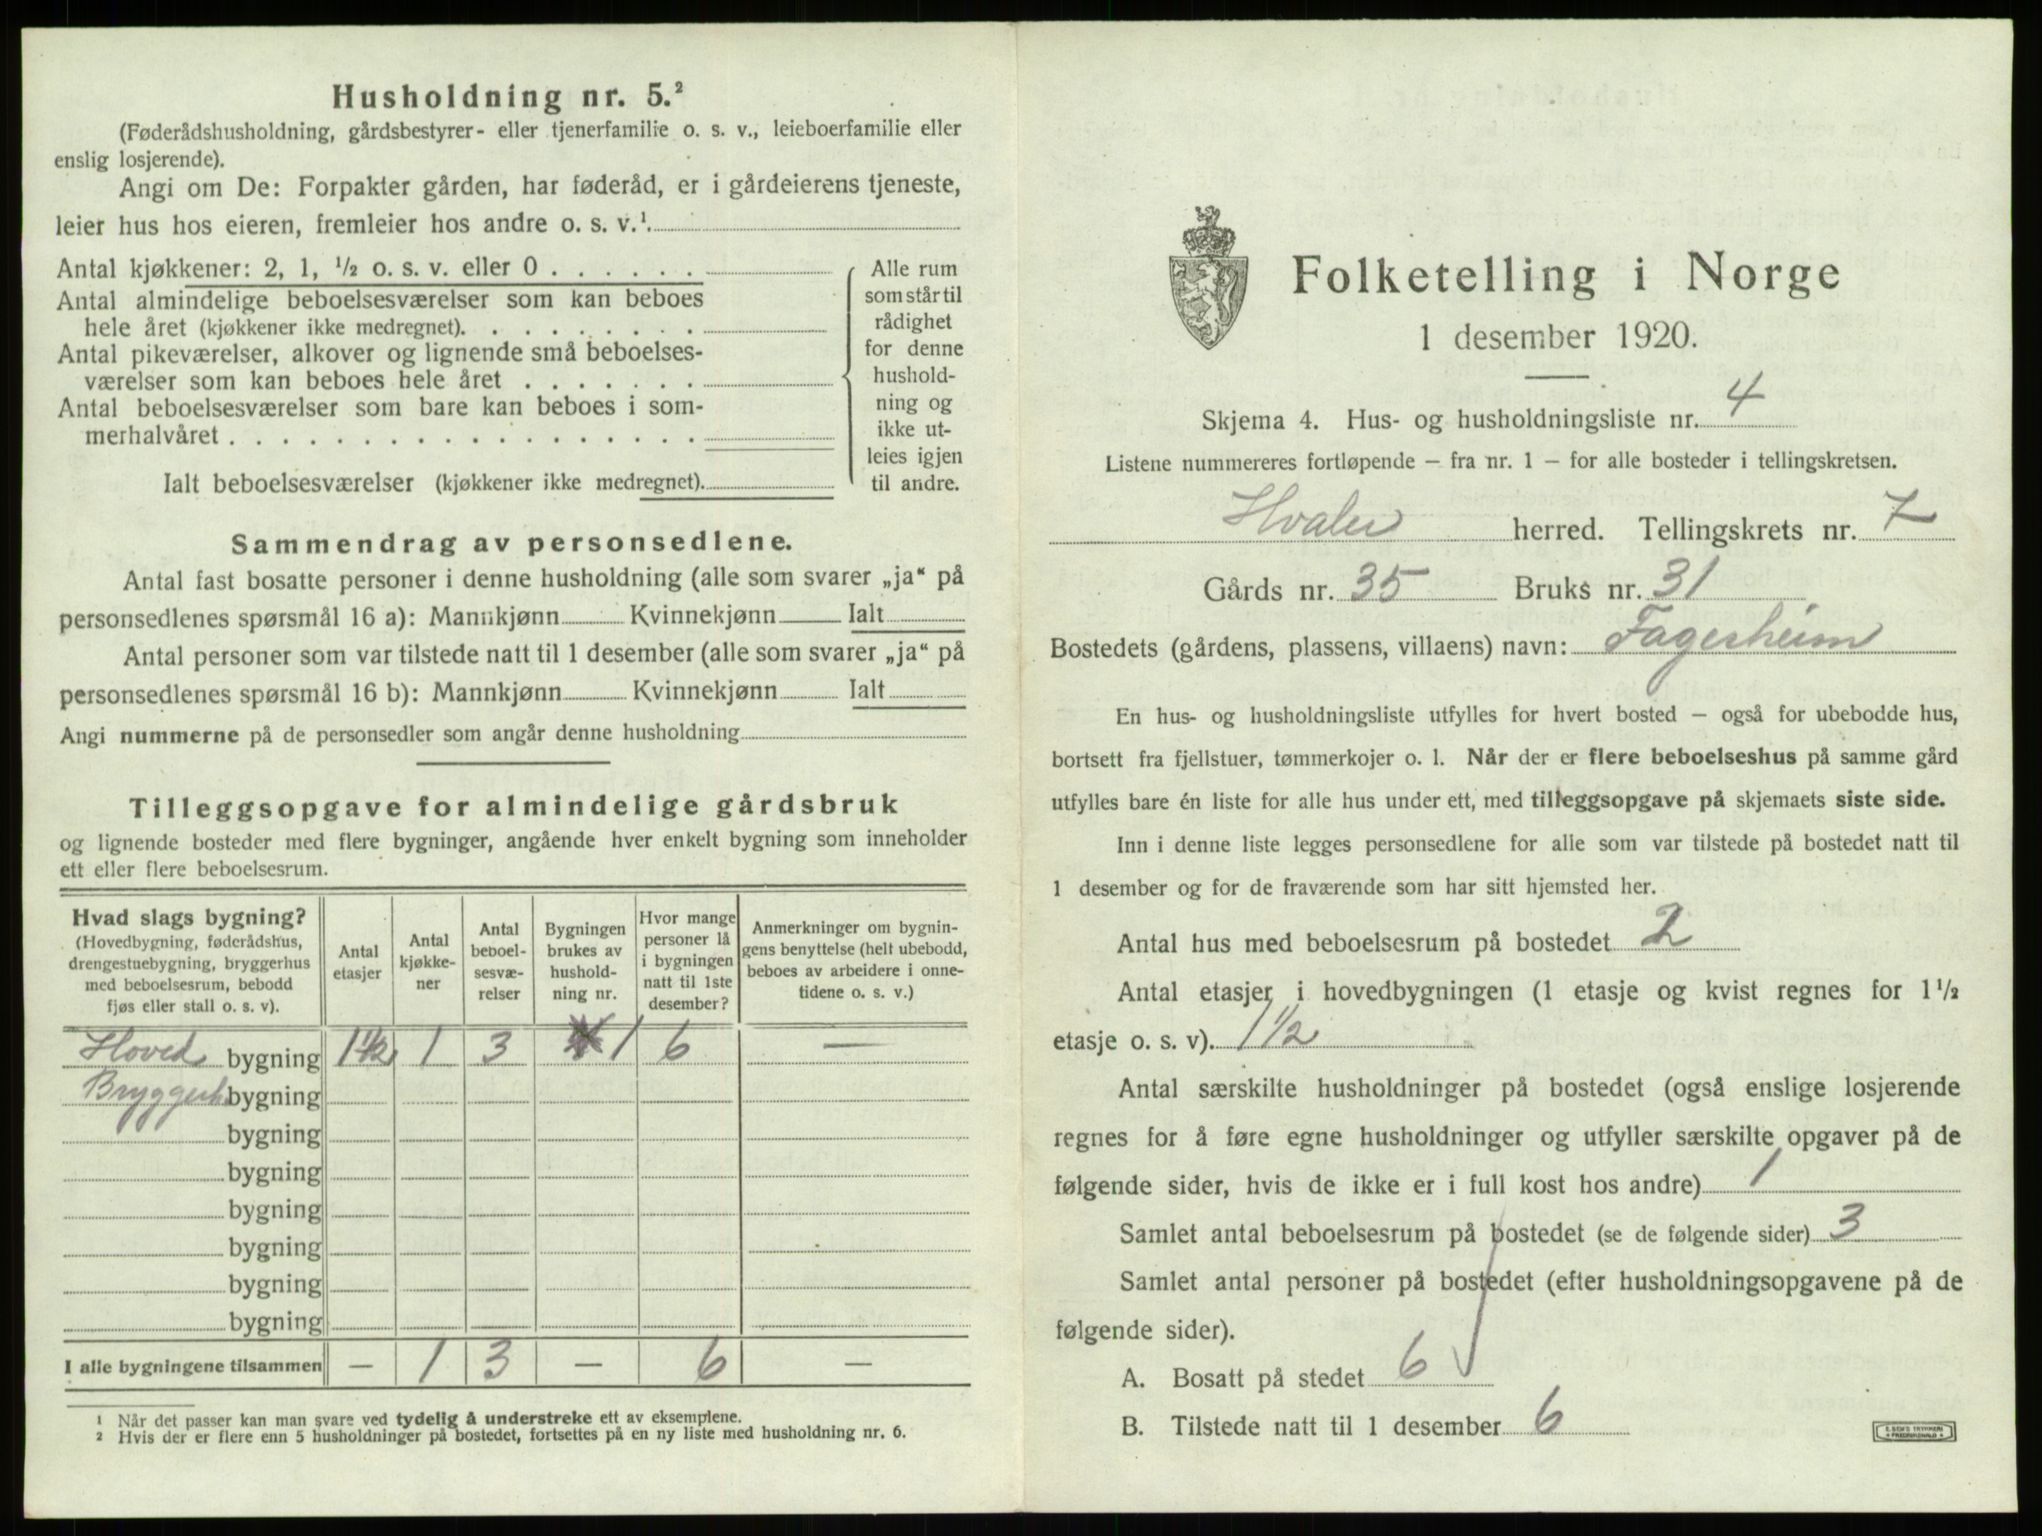 Husholdning nr. 5.²
(Føderådshusholdning, gårdsbestyrer- eller tjenerfamilie o. s. v., leieboerfamilie eller
enslig losjerende).
Angi om De: Forpakter gården, har føderåd, er i gårdeierens tjeneste,
leier hus hos eieren, fremleier hos andre o. s. v.¹
Antal kjøkkener: 2, 1, ½ o. s. v. eller 0 . . . . . .
Antal almindelige beboelsesværelser som kan beboes
hele året (kjøkkener ikke medregnet). . . . . . . . .
Antal pikeværelser, alkover og lignende små beboelses-
værelser som kan beboes hele året . . . . . . .
Antal beboelsesværelser som bare kan beboes i som-
merhalvåret . . . . . . . . . . . . . . . . . .
Ialt beboelsesværelser (kjøkkener ikke medregnet).
Alle rum
som står til
rådighet
for denne
hushold-
ning og
ikke ut-
leies igjen
til andre.
Sammendrag av personsedlene.
Antal fast bosatte personer i denne husholdning (alle som svarer „ja“ på
personsedlenes spørsmål 16 a): Mannkjønn Kvinnekjønn Ialt
Antal personer som var tilstede natt til 1 desember (alle som svarer „ja“ på
personsedlenes spørsmål 16 b): Mannkjønn Kvinnekjønn Ialt
Angi nummerne på de personsedler som angår denne husholdning
Tilleggsopgave for almindelige gårdsbruk
og lignende bosteder med flere bygninger, angående hver enkelt bygning som inneholder
ett eller flere beboelsesrum.
Hvad slags bygning?
(Hovedbygning, føderådshus,
drengestuebygning, bryggerhus
med beboelsesrum, bebodd
fjøs eller stall o. s. v).
Antal
etasjer
Antal
kjøkke-
ner
Antal
beboel-
sesvæ-
relser
Bygningen
brukes av
hushold-
ning nr.
Hvor mange
personer lå
i bygningen
natt til 1ste
desember?
Anmerkninger om bygnin-
gens benyttelse (helt ubebodd,
beboes av arbeidere i onne-
tidene o. s. v.)
Hoved bygning 1½ 1 3 1 6 —
Bryggerh. bygning
bygning
bygning
bygning
bygning
bygning
bygning
I alle bygningene tilsammen — 1 3 — 6 —
¹ Når det passer kan man svare ved tydelig å understreke ett av eksemplene.
² Hvis der er flere enn 5 husholdninger på bostedet, fortsettes på en ny liste med husholdning nr. 6.
Folketelling i Norge
1 desember 1920.
Skjema 4. Hus- og husholdningsliste nr. 4
Listene nummereres fortløpende – fra nr. 1 – for alle bosteder i tellingskretsen.
Hvaler herred. Tellingskrets nr. 7
Gårds nr. 35 Bruks nr. 31
Bostedets (gårdens, plassens, villaens) navn: Fagerheim
En hus- og husholdningsliste utfylles for hvert bosted – også for ubebodde hus,
bortsett fra fjellstuer, tømmerkojer o. l. Når der er flere beboelseshus på samme gård
utfylles bare én liste for alle hus under ett, med tilleggsopgave på skjemaets siste side.
Inn i denne liste legges personsedlene for alle som var tilstede på bostedet natt til
1 desember og for de fraværende som har sitt hjemsted her.
Antal hus med beboelsesrum på bostedet 2
Antal etasjer i hovedbygningen (1 etasje og kvist regnes for 1½
etasje o. s. v). 1½
Antal særskilte husholdninger på bostedet (også enslige losjerende
regnes for å føre egne husholdninger og utfyller særskilte opgaver på de
følgende sider, hvis de ikke er i full kost hos andre) 1
Samlet antal beboelsesrum på bostedet (se de følgende sider) 3
Samlet antal personer på bostedet (efter husholdningsopgavene på de
følgende sider).
A. Bosatt på stedet 6
B. Tilstede natt til 1 desember 6